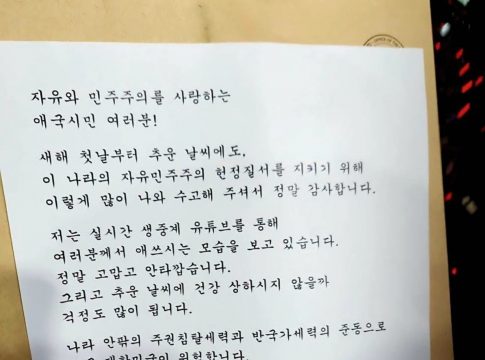 자유와 민주주의를 사랑하는
애국시민 여러분!
새해 첫날부터 추운 날씨에도,
이 나라의 자유민주주의 헌정질서를 지키기 위해
이렇게 많이 나와 수고해 주셔서 정말 감사합니다.
저는 실시간 생중계 유튜브를 통해
여러분께서 애쓰시는 모습을 보고 있습니다.
정말 고맙고 안타깝습니다.
그리고 추운 날씨에 건강 상하시지 않을까
걱정도 많이 됩니다.
나라 안팎의 주권침탈세력과 반국가세력의 준동으로
대한민국이 위험합니다.